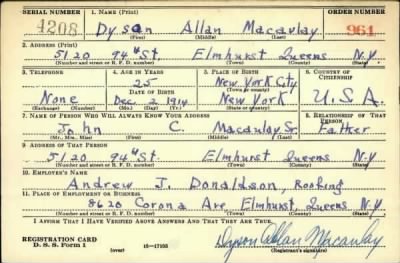 SERIAL NUMBER 1. NAME (Print) ORDER NUMBER
4208 Dyson Allan Macaulay 961
(First) (Middle) (Last)
2. ADDRESS (Print)
5120 94th St. Elmhurst Queens N.Y.
(Number and street or R. F. D. number) (Town) (County) (State)
3. TELEPHONE 4. AGE IN YEARS 5. PLACE OF BIRTH 6. COUNTRY OF CITIZENSHIP
25 New York City
DATE OF BIRTH (Town or county)
None Dec 2 1914 New York U.S.A.
(Exchange) (Number) (Mo.) (Day) (Yr.) (State or country)
7. NAME OF PERSON WHO WILL ALWAYS KNOW YOUR ADDRESS 8. RELATIONSHIP OF THAT PERSON
John C. Macaulay Sr. Father
(Mr., Mrs., Miss) (First) (Middle) (Last)
9. ADDRESS OF THAT PERSON
5120 94th St. Elmhurst Queens N.Y.
(Number and street or R. F. D. number) (Town) (County) (State)
10. EMPLOYER'S NAME
Andrew J. Donaldson, Roofing
11. PLACE OF EMPLOYMENT OR BUSINESS
8620 Corona Ave, Elmhurst, Queens N.Y
(Number and street or R. F. D. number) (Town) (County) (State)
I AFFIRM THAT I HAVE VERIFIED ABOVE ANSWERS AND THAT THEY ARE TRUE.
REGISTRATION CARD
D. S. S. Form 1 (over) 16-17105 Dyson Allan Macaulay
(Registrant's signature)